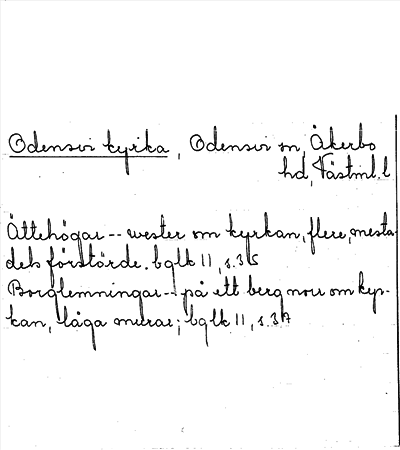 Odensvi kyrka, Odensvi sn, Åkerbo
hd, Västml. l
Ättehögar -- wester om kyrkan, flere, mesta-
dels förstörde. bglk 11, s. 36
Borglemningar -- på ett berg norr om kyr-
kan, låga murar; bglk 11, s. 37